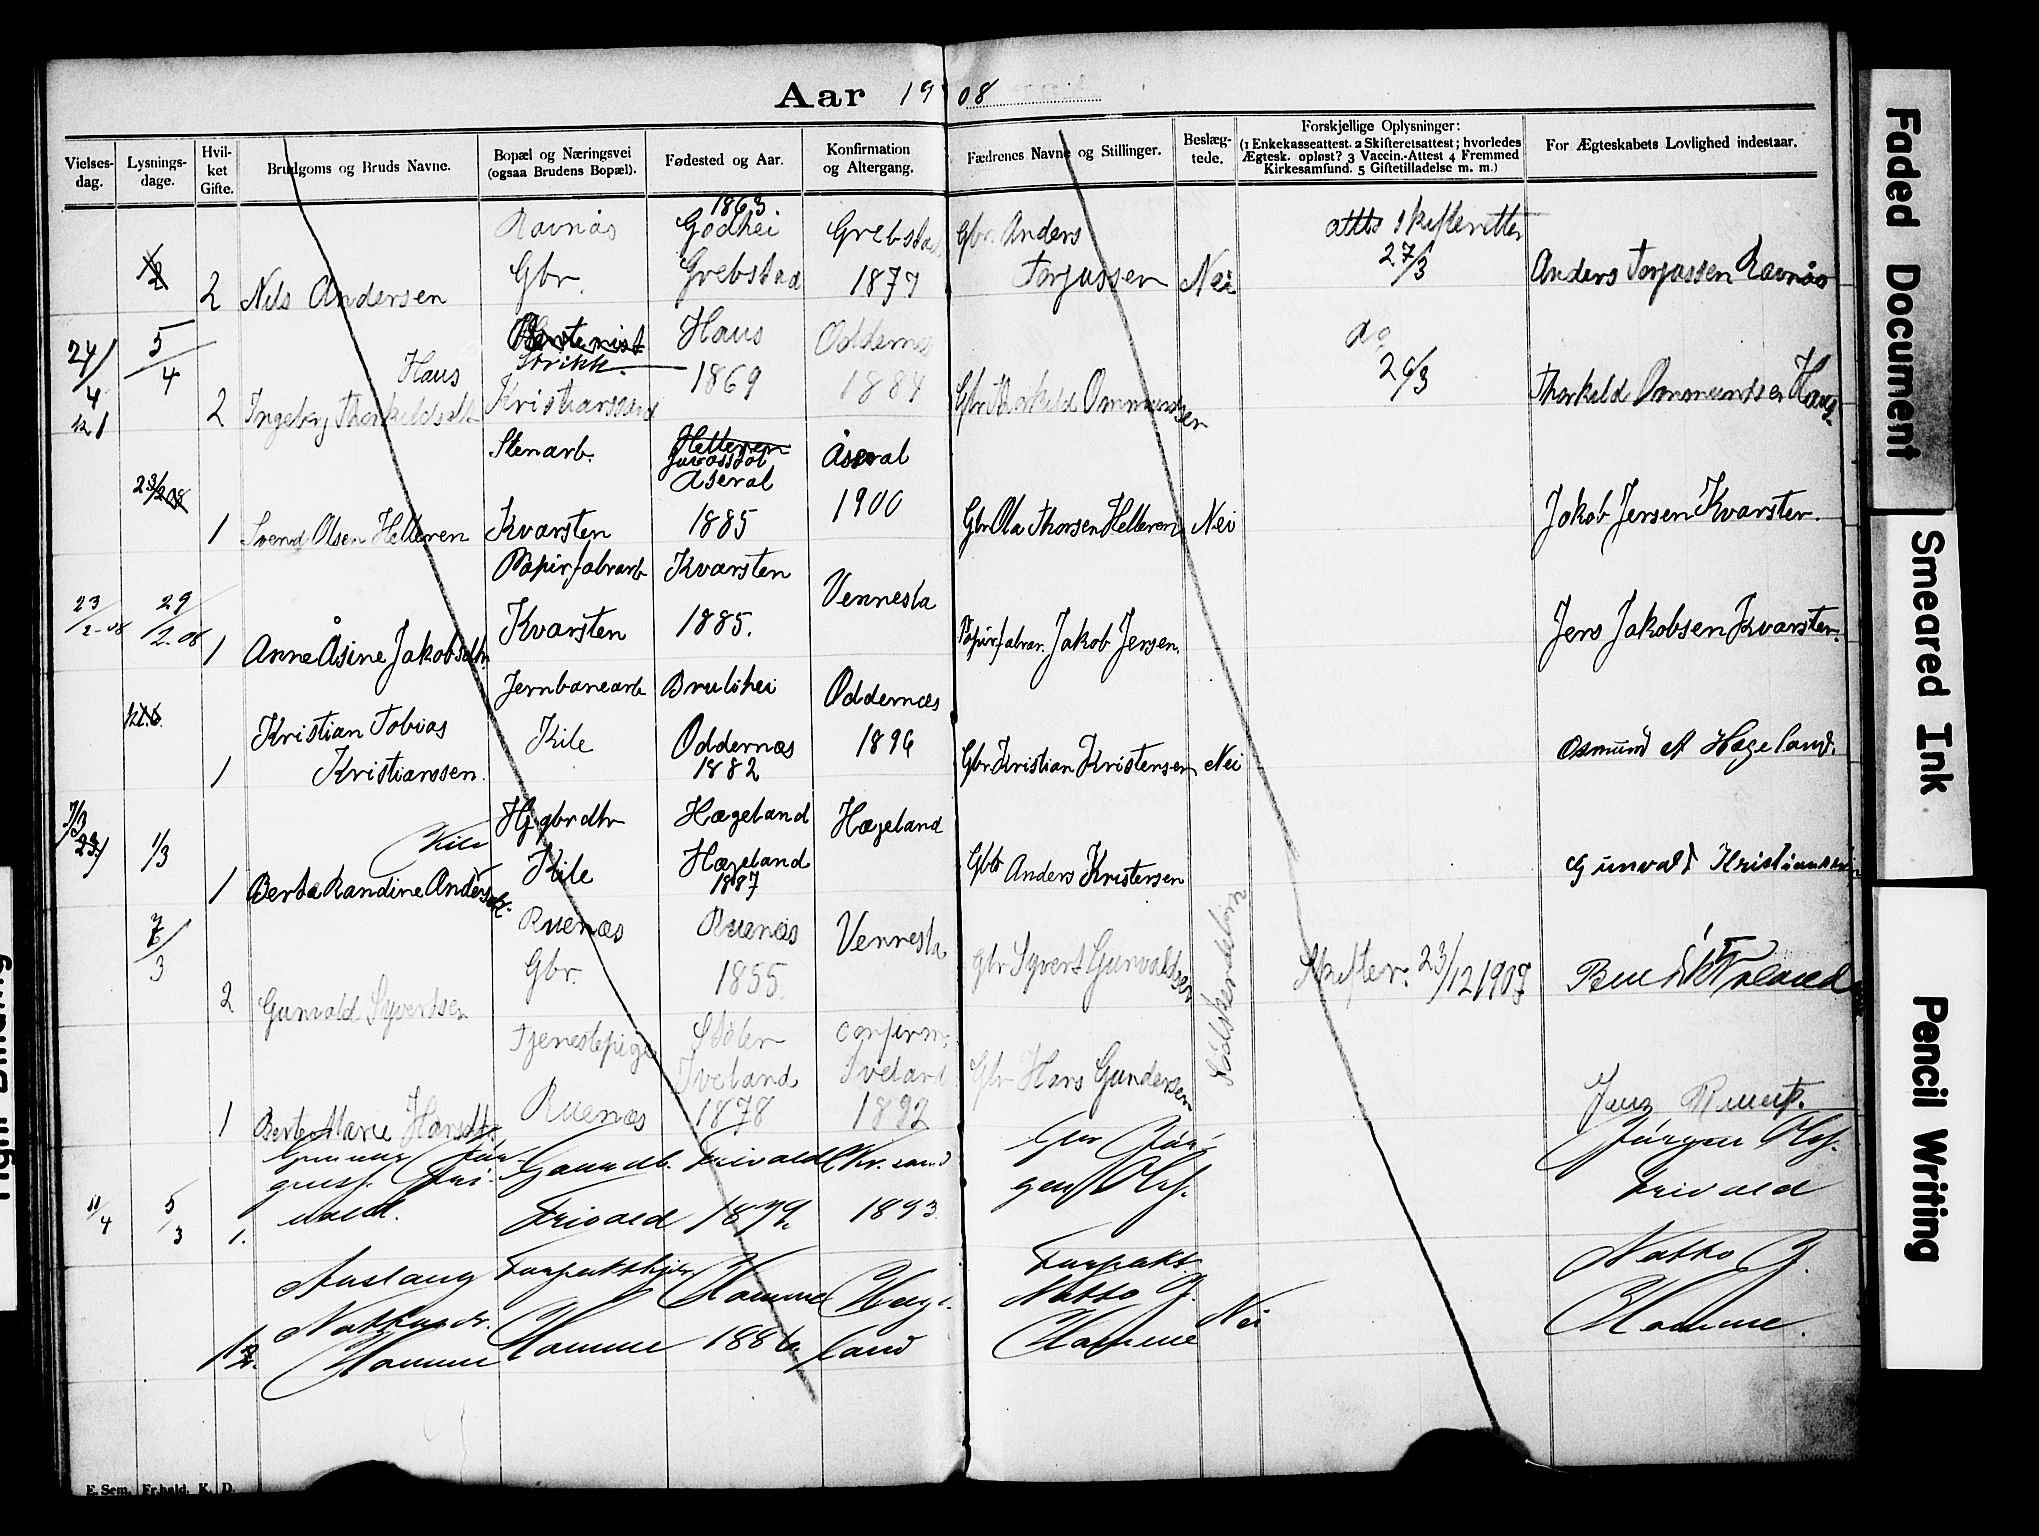 Aar 1908
Vielses-dag.
Lysnings-dage.
Hvil-ket Gifte.
Brudgoms og Bruds Navne.
Bopæl og Næringsvei (ogsaa Brudens Bopæl).
Fødested og Aar.
Konfirmation og Altergang.
Fædrenes Navne og Stillinger.
Beslæg-tede.
Forskjellige Oplysninger: (1 Enkekasseattest. 2 Skifteretsattest; hvorledes Ægtesk. opløst? 3 Vaccin.-Attest 4 Fremmed Kirkesamfund. 5 Giftetilladelse m. m.)
For Ægteskabets Lovlighed indestaar.
2 Nils Andersen
Ravnås
Gbr.
1863
Godhei
Grebstad
Grebstad
1877
Gbr. Anders
Torjussen
Nei
27/3
Anders Torjussen Ravnås
24/4
5/4
Haus
2
Strikk.
Kristianssand
Haus
1869
Oddernes
1884
Gbr Thorkild Ommundsen
do
26/3
Thorkild Ommundsen Haus
1 Svend Olsen Helleren
Stenarb.
Kvarsten
Helleren
Åseral
1885
Åseral
1900
Gbr Ola Thorsen Helleren
Nei
Jakob Jensen Kvarsten.
23/2-08
29/2-08
1 Anne Åsine Jakobsdtr
Papirfabrarb
Kvarsten
Kvarsten
1885.
Vennesla
Papirfabrar. Jakob Jensen.
Jens Jakobsen Kvarsten.
1 Kristian Tobias
Kristianssen.
Jernbanearb
Kile
Brulihei
Oddernæs
1882
Oddernæs
1896
Gbr. Kristian Kristensen
Nei
Osmund et Hægeland.
7/3
1/3
Kile
1 Berta Randine Andersdt.
Hj gbrdtr
Kile
Hægeland
Hægeland
1887
Hægeland
Gbr Anders Kristensen
Gunvald Kristiansen
7/3
2 Gunvald Syvertsen
Ruenæs
Gbr.
Ruenæs
1855.
Vennesla
gbr Syvert Gunvaldsen
Sødskendebørn
Skifter. 23/12 1907
1 Berte Marie Hansdtr.
Tjenestepige
Ruenæs
Stølen
Iveland
1878
confirm.
Iveland
1892
Gbr Hans Gundersen
Jens Ruenæs.
11/4
5/3
1.
Gaardb.
Frivold
Frivold
1879
Kr.sand
1893
Gbr Jør-
gen Ols.
Jørgen Ols.
Frivold
Aaslaug
Homme
Homme
Homme
1886
Hæge-
land
Forpakt.
Natto G.
Homme
Nei
Natto G.
Homme.
E. Sem. Fr.hald. K. D.
Faded Document
Smeared Ink
Pencil Writing